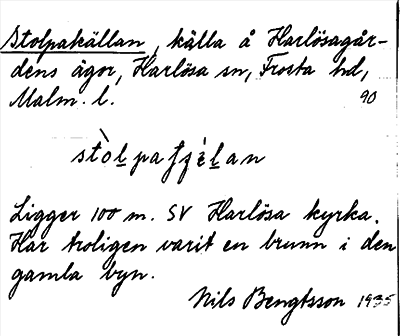 Stolpakällan, källa å Harlösagår-
dens ägor, Harlösa sn, Frosta hd,
Malm. l. 90
stòlpafʒèlan
Ligger 100 m. SV Harlösa kyrka.
Har troligen varit en brunn i den
gamla byn.
Nils Bengtsson 1935